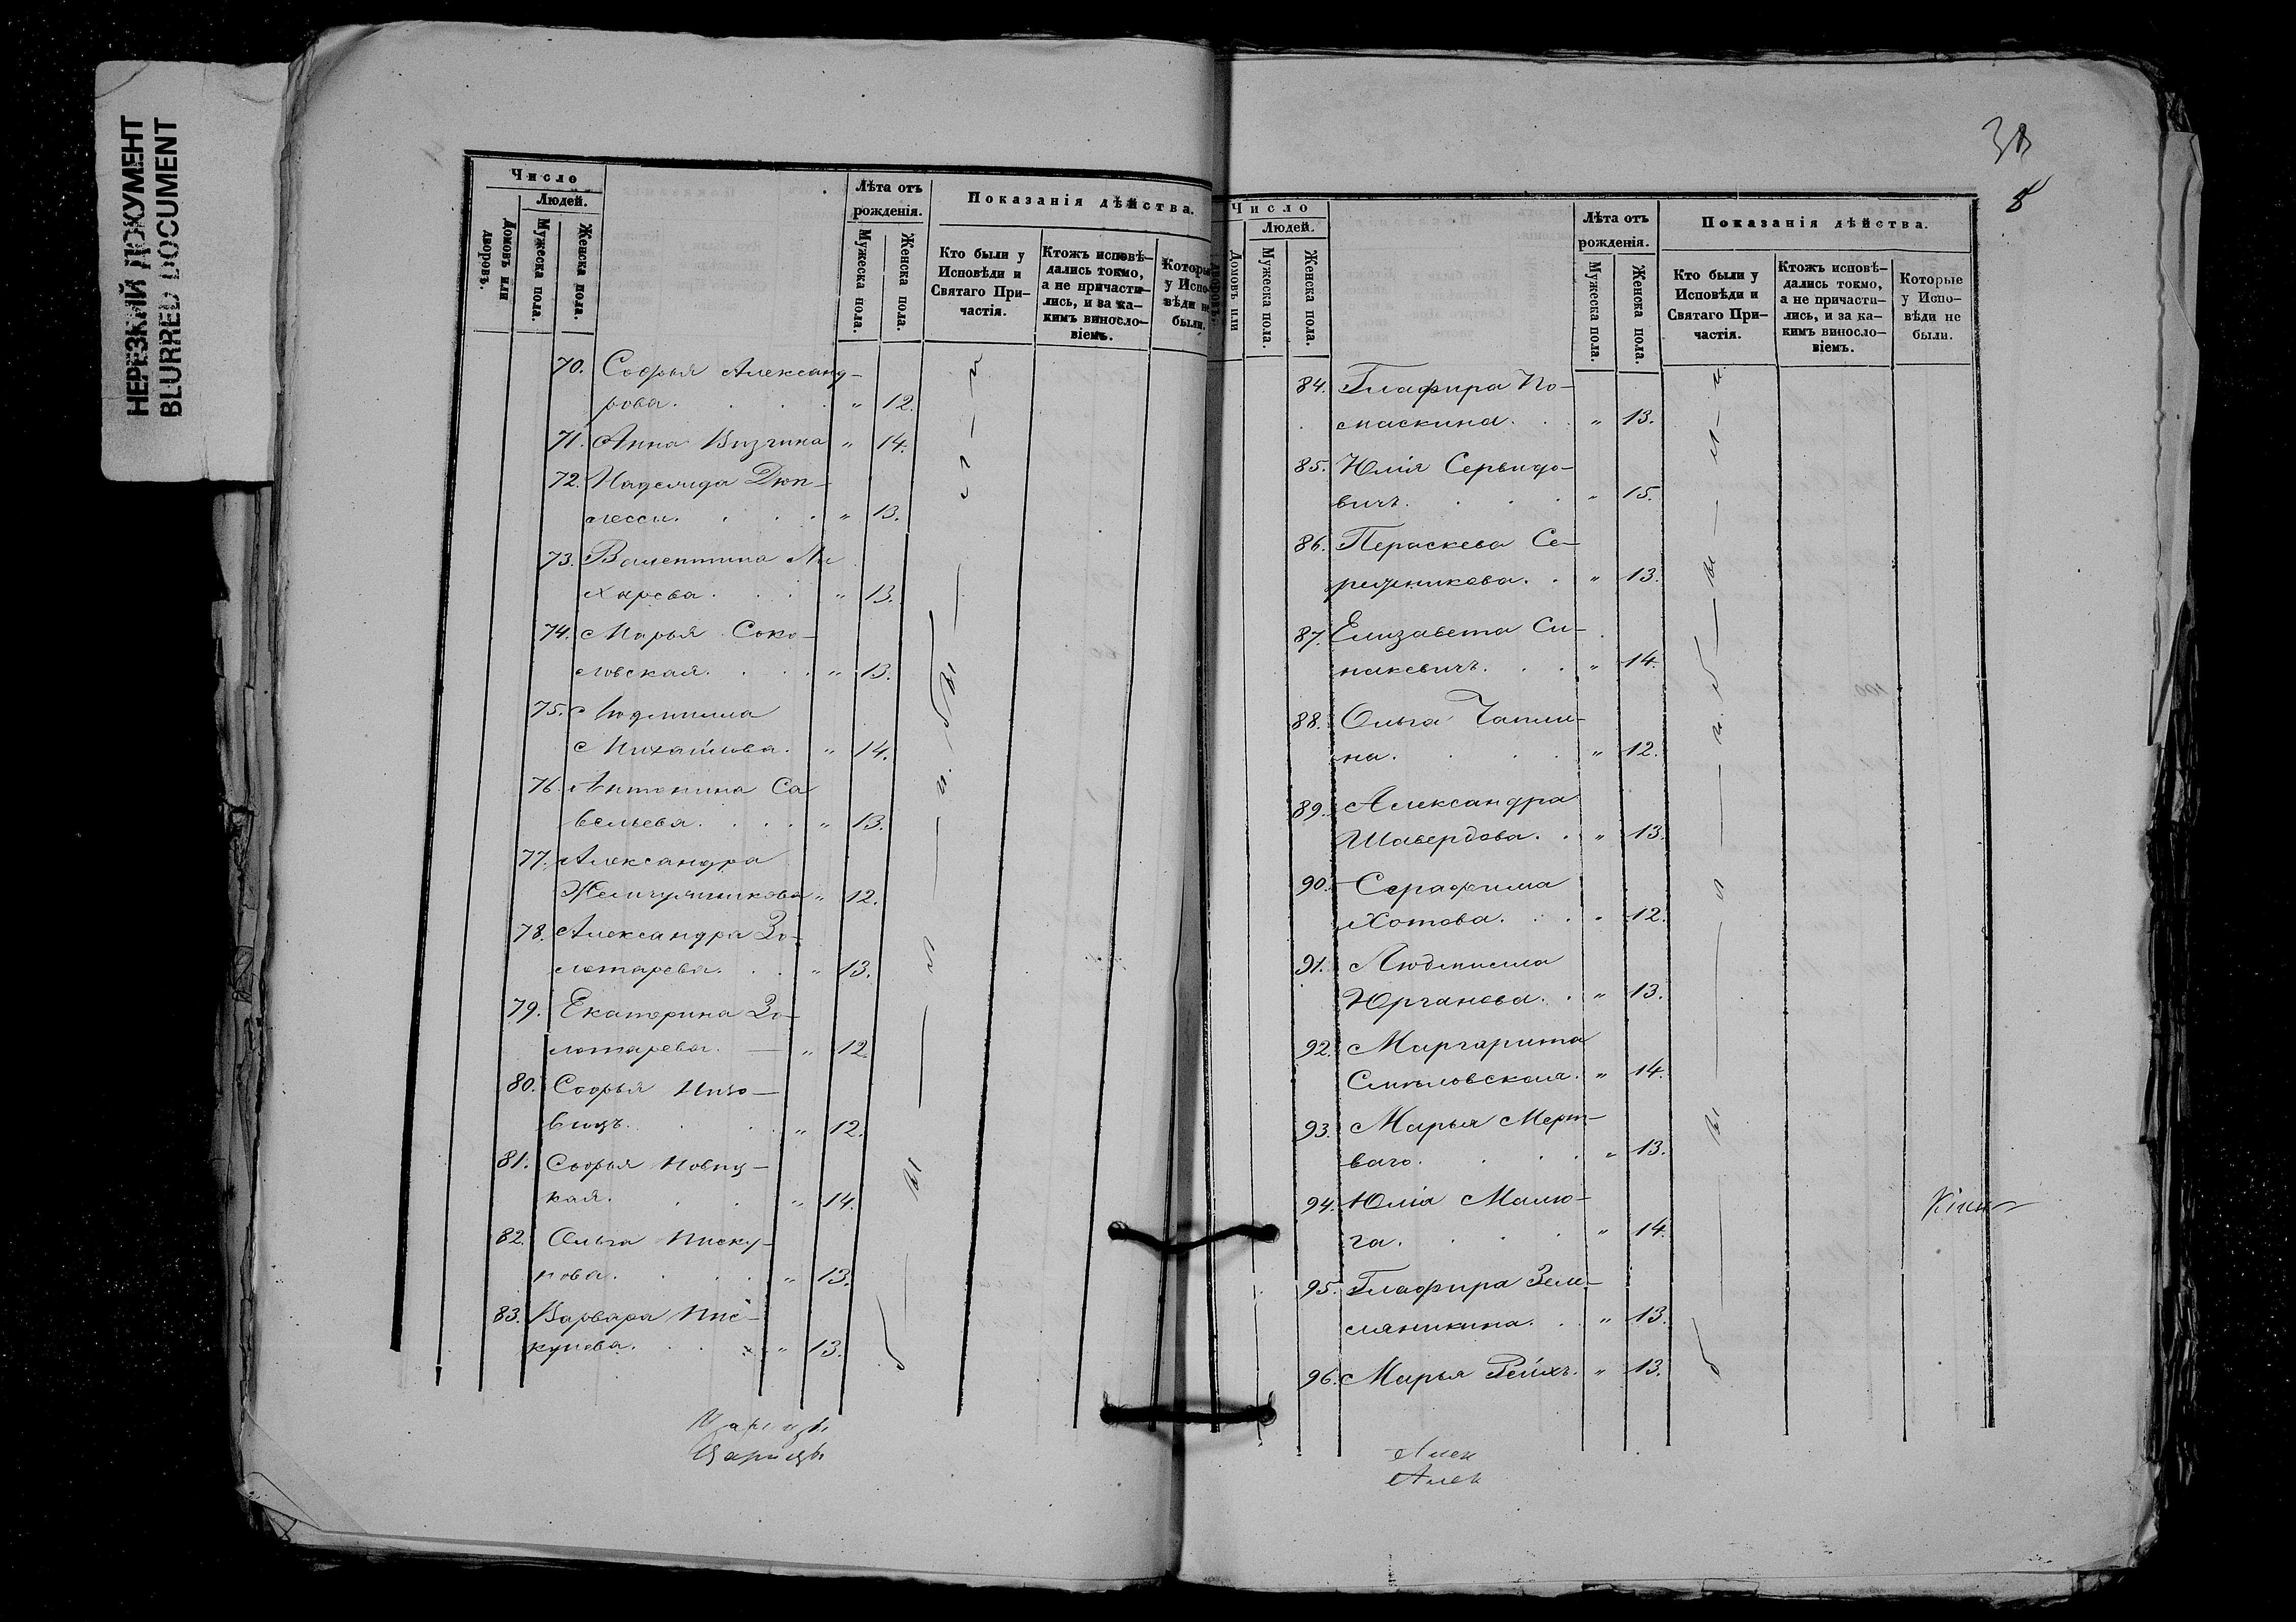 НЕРЕЗКИЙ ДОКУМЕНТ
BLURRED DOCUMENT
Число
Людей.
Домовъ или дворовъ.
Мужеска пола.
Женска пола.
Лѣта отъ рожденія.
Мужеска пола.
Женска пола.
Показанія дѣйства.
Кто были у
Исповѣди и
Святаго При-
частія.
Ктожъ исповѣ-
дались токмо,
а не причасти-
лись, и за ка-
кимъ винословіемъ.
Которые
у Испо-
вѣди не
были.
70. Софья Александ-
рова. . . . " 12.
71. Анна Визгина " 14.
72. Надежда Дюп-
лесси. . . . " 13.
73. Валентина Ми
харева. . . " 13.
74. Марья Соко-
ловская. . . . " 13.
75. Людмила
Михайлова. " 14.
76. Антонина Са
вельева. . . . " 13.
77. Александра
Жемчужникова " 12.
78. Александра Зо-
лотарева. . . " 13.
79. Екатерина Зо-
лотарева. — " 12.
80. Софья
" 12.
81. Софья Новиц-
кая. . . " 14.
82. Ольга Писку-
нова. . . . " 13.
83. Варвара Пис-
кунова. . . " 13.
38
8
Число
Людей.
Домовъ или дворовъ.
Мужеска пола.
Женска пола.
Лѣта отъ
рожденія.
Мужеска пола.
Женска пола.
Показанія дѣйства.
Кто были у
Исповѣди и
Святаго При-
частія.
Ктожъ исповѣ-
дались токмо,
а не причасти-
лись, и за ка-
кимъ виносло-
віемъ.
Которые
у Испо-
вѣди не
были.
84. Глафира По-
маскина. . . " 13.
85. Юлія Сервидо-
вичъ. . . . " 15.
86. Параскева Се-
режникова. . " 13.
87. Елизавета Си-
накевичъ. . . " 14.
88. Ольга Чапли-
на. . . . " 12.
89. Александра
Шавердова. . " 13.
90. Серафима
Хотова. . . . " 12.
91. Людмила
Юрганова. . " 13.
92. Маргарита
Смѣловская. " 14.
93. Марья Мерт-
ваго. . . . " 13.
94. Юлія Малю-
га. . . . " 14.
95. Глафира Земе-
ляникина. . . " 13.
96. Марья Рейхъ. " 13.
Алек
Алек